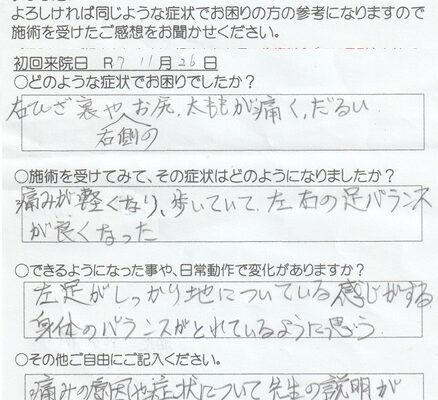 よろしければ同じような症状でお困りの方の参考になりますので
施術を受けたご感想をお聞かせください。
初回来院日 R7 11月26日
○どのような症状でお困りでしたか？
右ひざ裏やお尻、太ももが痛く、だるい
右側の
○施術を受けてみて、その症状はどのようになりましたか？
痛みが軽くなり、歩いていて、左右の足バランス
が良くなった
○できるようになった事や、日常動作で変化がありますか？
左足がしっかり地についている感じがする
身体のバランスがとれているように思う
○その他ご自由にご記入ください。
痛みの原因や症状について先生の説明が